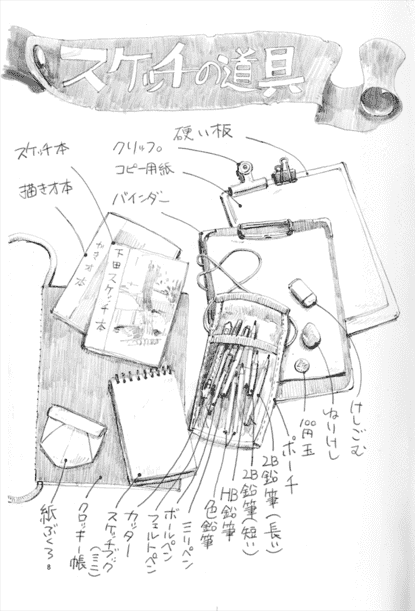 スケッチの道具
硬い板
クリップ
コピー用紙
バインダー
スケッチ本
描き方本
下田スケッチ本
けしごむ
ねりけし
100円玉
ポーチ
2B鉛筆(長い)
2B鉛筆(短い)
HB鉛筆
色鉛筆
ミリペン
ボールペン
フェルトペン
カッター
スケッチブック
(ミニ)
クロッキー帳
紙ぶくろ。